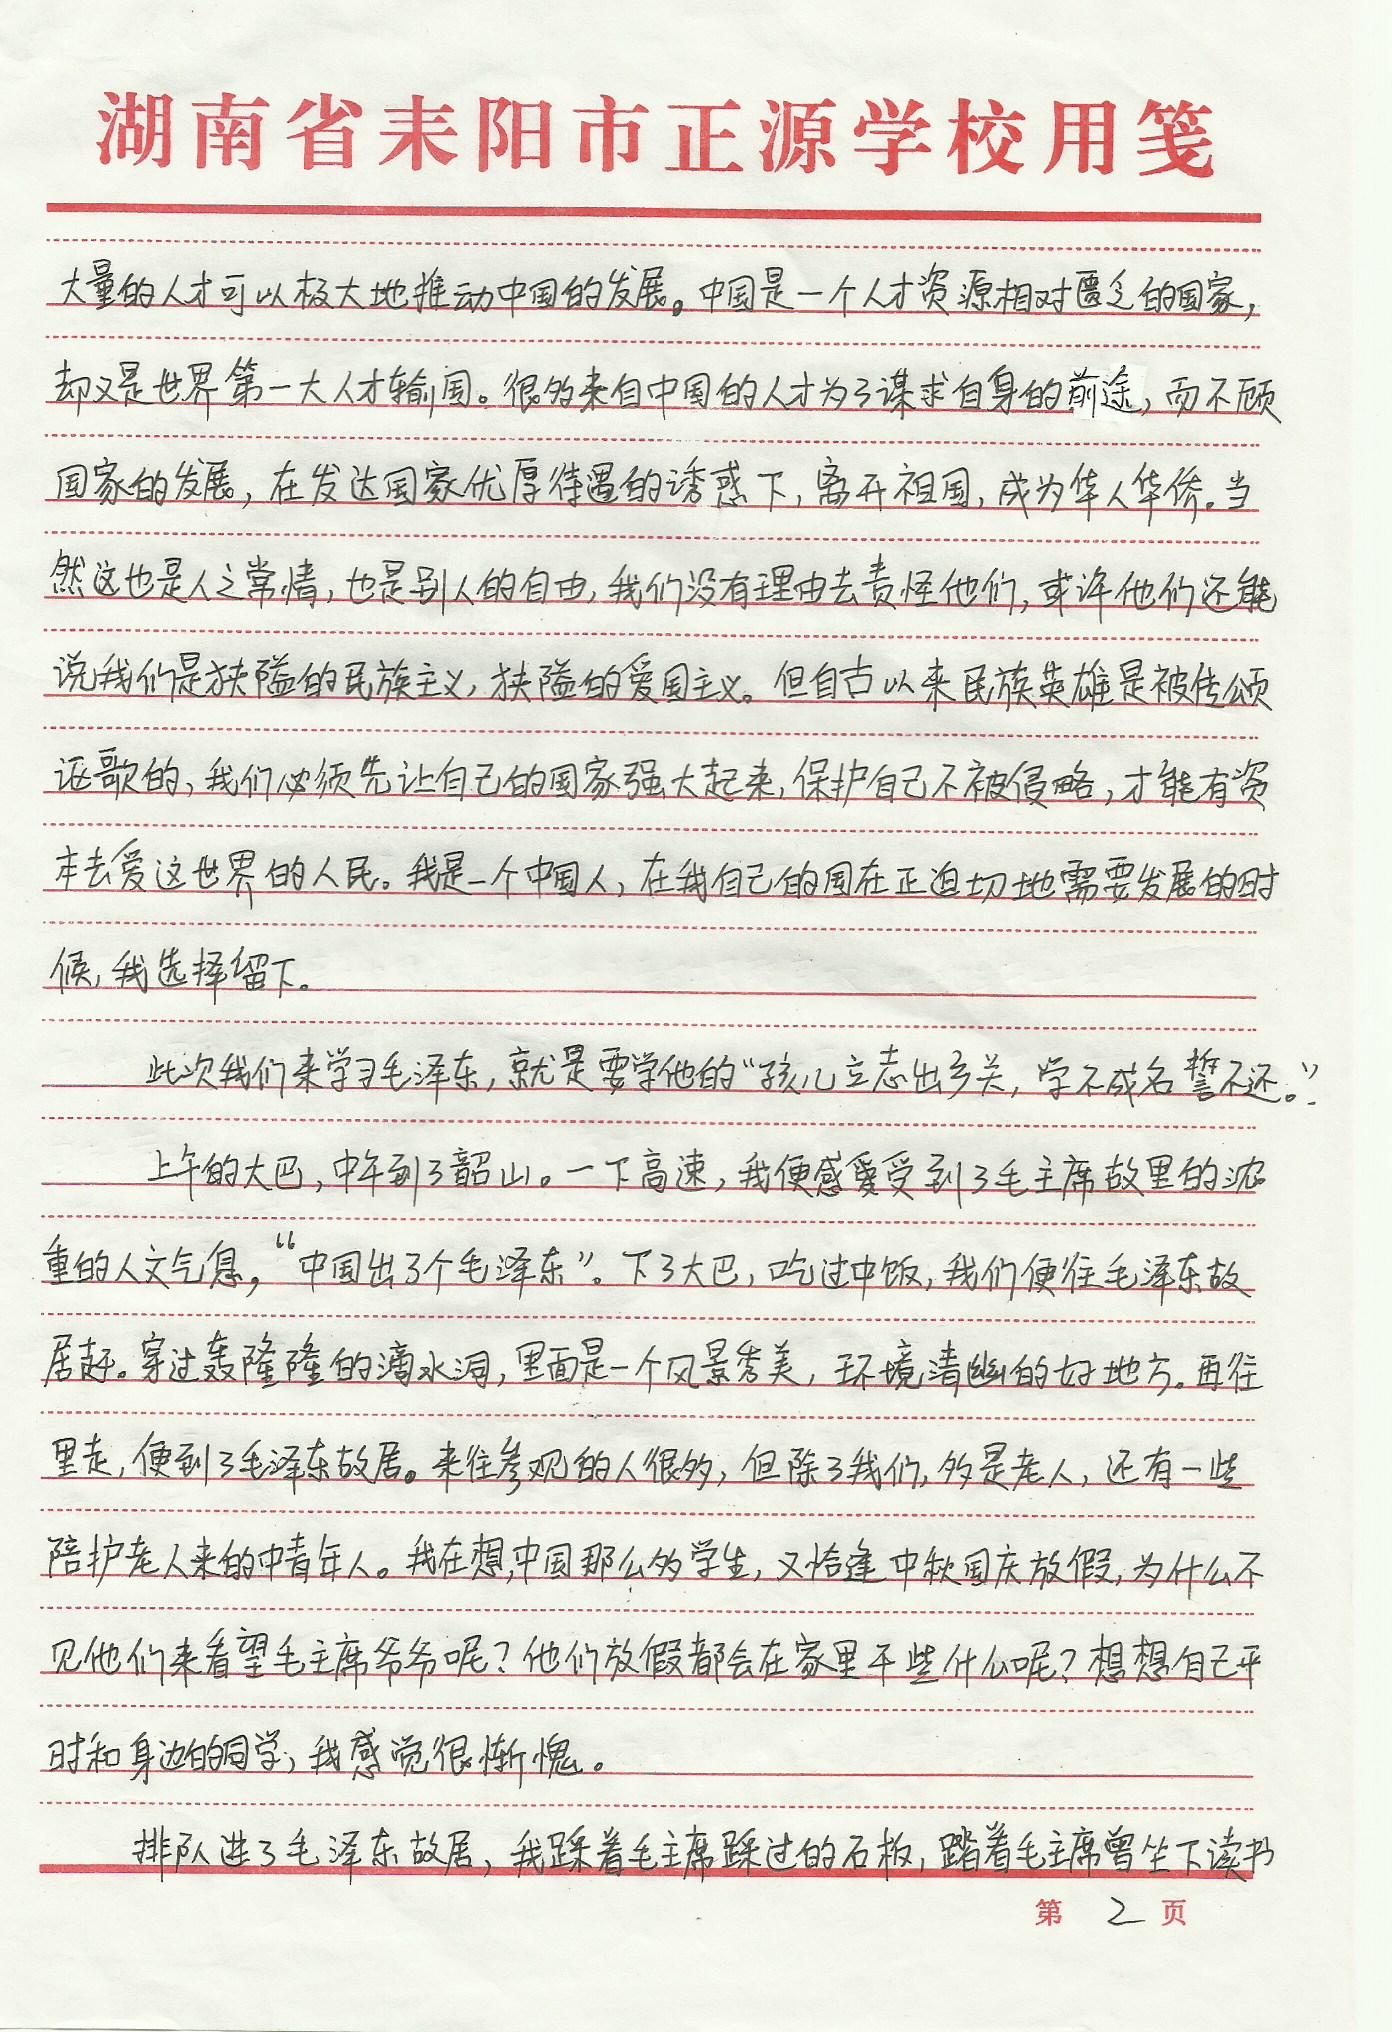 湖南省耒阳市正源学校用笺
大量的人才可以极大地推动中国的发展。中国是一个人才资源相对匮乏的国家,
却又是世界第一大人才输国。很多来自中国的人才为了谋求自身的前途,而不顾
国家的发展,在发达国家优厚待遇的诱惑下,离开祖国,成为华人华侨。当
然这也是人之常情,也是别人的自由,我们没有理由去责怪他们,或许他们还能
说我们是狭隘的民族主义,狭隘的爱国主义。但自古以来民族英雄是被传颂
讴歌的,我们必须先让自己的国家强大起来,保护自己不被侵略,才能有资
本去爱这世界的人民。我是一个中国人,在我自己的国在正迫切地需要发展的时
候,我选择留下。
此次我们来学习毛泽东,就是要学他的“孩儿立志出乡关,学不成名誓不还。”
上午的大巴,中午到了韶山。一下高速,我便感受到了毛主席故里的浓
重的人文气息,“中国出了个毛泽东”。下了大巴,吃过中饭,我们便往毛泽东故
居赶。穿过轰隆隆的滴水洞,里面是一个风景秀美,环境清幽的好地方。再往
里走,便到了毛泽东故居。来往参观的人很多,但除了我们,多是老人,还有一些
陪护老人来的中青年人。我在想,中国那么多学生,又恰逢中秋国庆放假,为什么不
见他们来看望毛主席爷爷呢?他们放假都会在家里干些什么呢?想想自己平
时和身边的同学,我感觉很惭愧。
排队进了毛泽东故居,我踩着毛主席踩过的石板,踏着毛主席曾坐下读书
第 2 页